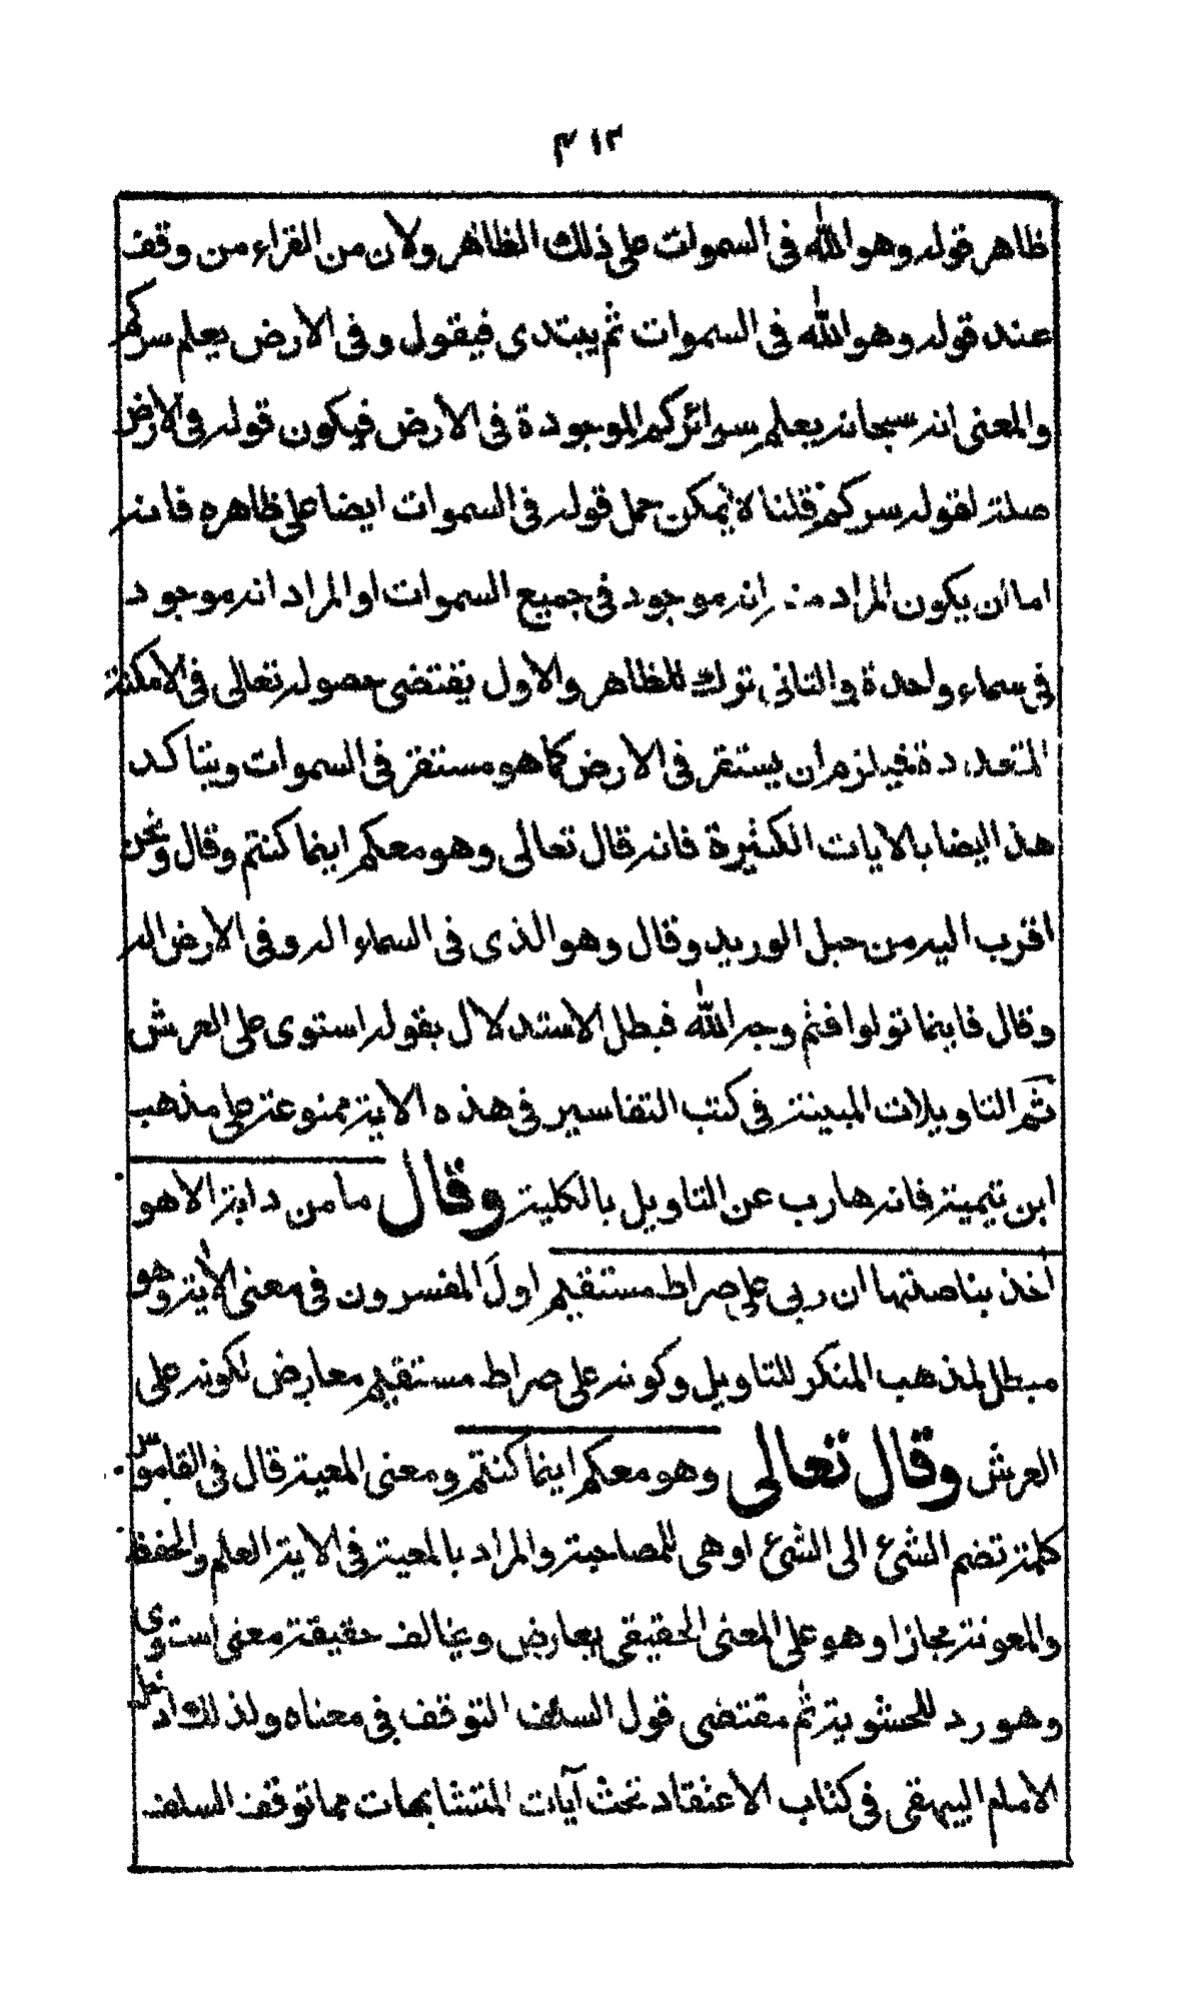 ٣١٣
ظاهر قوله وهو الله فى السموات على ذلك الظاهر ولان من القراء من وقف
عند قوله وهو الله فى السموات ثم يبتدى فيقول وفى الارض يعلم سركم
والمعنى انه سبحانه يعلم سرائركم الموجودة فى الارض فيكون قوله فى الارض
صلة لقوله سركم قلنا لا يمكن حمل قوله فى السموات ايضا على ظاهره فانه
اما ان يكون المراد منه انه موجود فى جميع السموات او المراد انه موجود
فى سماء واحدة والثانى ترك للظاهر والاول يقتضى حصوله تعالى فى الامكنة
المتعددة فيلزم ان يستقر فى الارض كما هو مستقر فى السموات ويتاكد
هذا ايضا بالايات الكثيرة فانه قال تعالى وهو معكم اينما كنتم وقال ونحن
اقرب اليه من حبل الوريد وقال وهو الذى فى السماء اله وفى الارض اله
وقال فاينما تولوا فثم وجه الله فبطل الاستدلال بقوله استوى على العرش
ثم التاويلات المبينة فى كتب التفاسير فى هذه الاية ممنوعة على مذهب
ابن تيمية فانه هارب عن التاويل بالكلية وقال ما من دابة الا هو
اخذ بناصتها ان ربى على صراط مستقيم اول المفسرون فى معنى الاية وهو
مبطل لمذهب المنكر للتاويل وكونه على صراط مستقيم معارض لكونه على
العرش وقال تعالى وهو معكم اينما كنتم ومعنى المعية قال فى القاموس
كلمة تضم الشئ الى الشئ او هى للمصاحبة والمراد بالمعية فى الاية العلم والحفظ
والمعونة مجازا وهو على المعنى الحقيقى يعارض ويخالف حقيقة معنى استوى
وهو رد للحشوية ثم مقتضى قول السلف التوقف فى معناه ولذلك ادخل
الامام البيهقى فى كتاب الاعتقاد تحت آيات المتشابهات مما توقف السلف